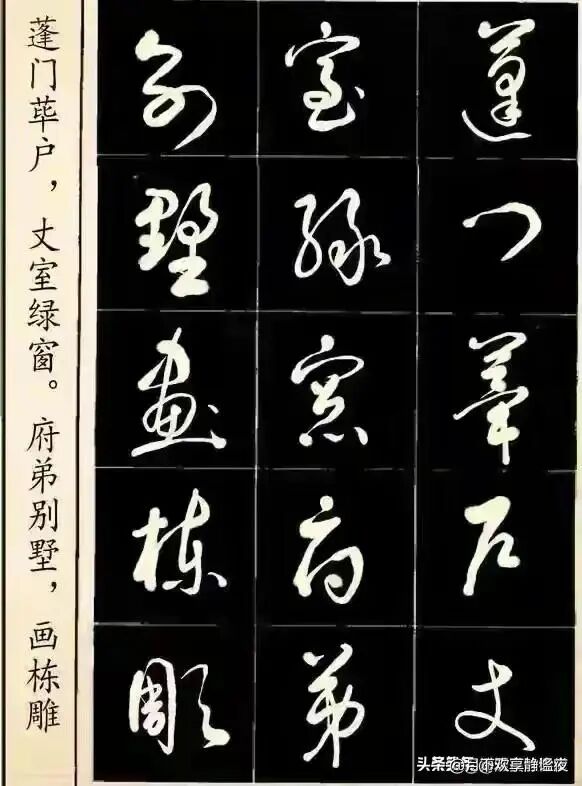 蓬门荜户丈
室绿窗府弟
别墅画栋雕
蓬门荜户，丈室绿窗。府弟别墅，画栋雕
头条